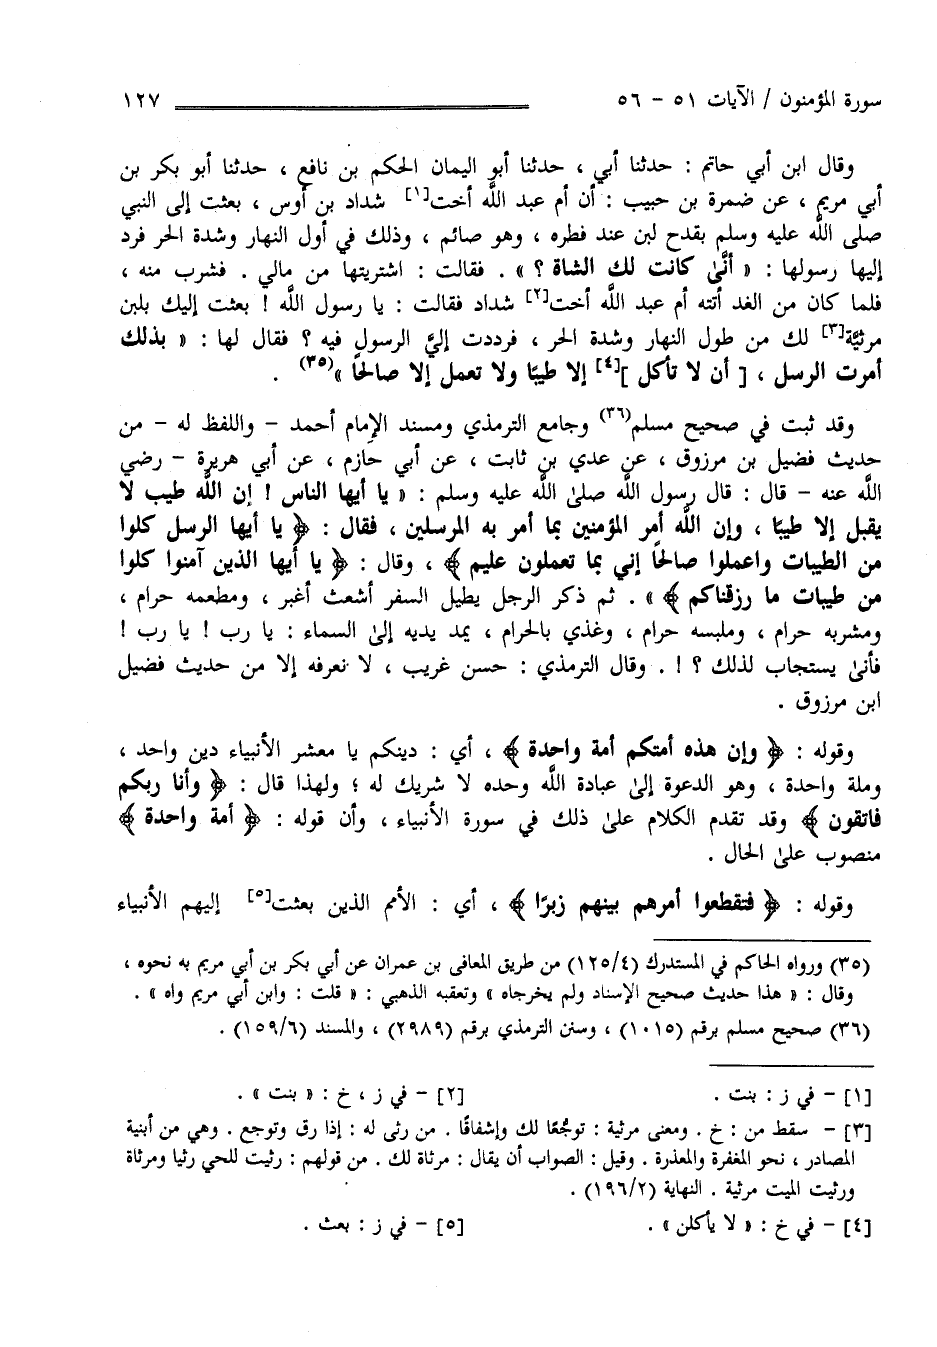 سورة المؤمنون / الآيات ٥١ - ٥٦ ١٢٧
وقال ابن أبي حاتم : حدثنا أبي ، حدثنا أبو اليمان الحكم بن نافع ، حدثنا أبو بكر بن
أبي مريم ، عن ضمرة بن حبيب : أن أم عبد اللَّه أخت[١] شداد بن أوس ، بعثت إلى النبي
صلى اللَّه عليه وسلم بقدح لبن عند فطره ، وهو صائم ، وذلك في أول النهار وشدة الحر فرد
إليها رسولها : « أنَّى كانت لك الشاة ؟ » . فقالت : اشتريتها من مالي . فشرب منه ،
فلما كان من الغد أتته أم عبد اللَّه أخت[٢] شداد فقالت : يا رسول اللَّه ! بعثت إليك بلبن
مرثيَّة[٣] لك من طول النهار وشدة الحر ، فرددت إليَّ الرسول فيه ؟ فقال لها : « بذلك
أمرت الرسل ، [ أن لا تأكل ][٤] إلا طيبًا ولا تعمل إلا صالحًا »(٣٥) .
وقد ثبت في صحيح مسلم(٣٦) وجامع الترمذي ومسند الإمام أحمد - واللفظ له - من
حديث فضيل بن مرزوق ، عن عدي بن ثابت ، عن أبي حازم ، عن أبي هريرة - رضي
اللَّه عنه - قال : قال رسول اللَّه صلىٰ اللَّه عليه وسلم : « يا أيها الناس ! إن اللَّه طيب لا
يقبل إلا طيبًا ، وإن اللَّه أمر المؤمنين بما أمر به المرسلين ، فقال : ﴿ يا أيها الرسل كلوا
من الطيبات واعملوا صالحًا إني بما تعملون عليم ﴾ ، وقال : ﴿ يا أيها الذين آمنوا كلوا
من طيبات ما رزقناكم ﴾ » . ثم ذكر الرجل يطيل السفر أشعث أغبر ، ومطعمه حرام ،
ومشربه حرام ، وملبسه حرام ، وغذي بالحرام ، يمد يديه إلىٰ السماء : يا رب ! يا رب !
فأنىٰ يستجاب لذلك ؟ ! . وقال الترمذي : حسن غريب ، لا نعرفه إلا من حديث فضيل
ابن مرزوق .
وقوله : ﴿ وإن هذه أمتكم أمة واحدة ﴾ ، أي : دينكم يا معشر الأنبياء دين واحد ،
وملة واحدة ، وهو الدعوة إلىٰ عبادة اللَّه وحده لا شريك له ؛ ولهذا قال : ﴿ وأنا ربكم
فاتقون ﴾ وقد تقدم الكلام علىٰ ذلك في سورة الأنبياء ، وأن قوله : ﴿ أمة واحدة ﴾
منصوب علىٰ الحال .
وقوله : ﴿ فتقطعوا أمرهم بينهم زبرًا ﴾ ، أي : الأمم الذين بعثت[٥] إليهم الأنبياء
(٣٥) ورواه الحاكم في المستدرك (١٢٥/٤) من طريق المعافى بن عمران عن أبي بكر بن أبي مريم به نحوه ،
وقال : « هذا حديث صحيح الإسناد ولم يخرجاه » وتعقبه الذهبي : « قلت : وابن أبي مريم واه » .
(٣٦) صحيح مسلم برقم (١٠١٥) ، وسنن الترمذي برقم (٢٩٨٩) ، والمسند (١٥٩/٦) .
[١] - في ز : بنت . [٢] - في ز ، خ : « بنت » .
[٣] - سقط من : خ . ومعنى مرثية : توجُّعًا لك وإشفاقًا . من رثى له : إذا رق وتوجع . وهي من أبنية
المصادر ، نحو المغفرة والمعذرة . وقيل : الصواب أن يقال : مرثاة لك . من قولهم : رثيت للحي رثيا ومرثاة
ورثيت الميت مرثية . النهاية (١٩٦/٢) .
[٤] - في خ : « لا يأكلن » . [٥] - في ز : بعث .